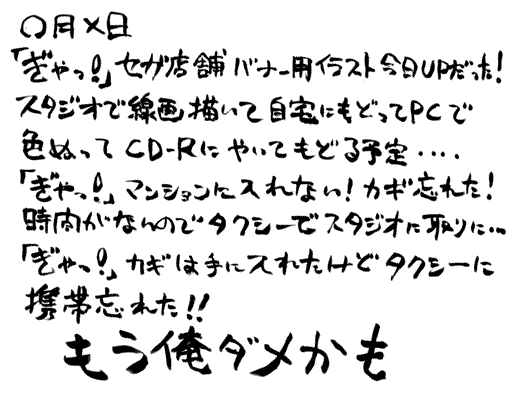 〇月×日
「ぎゃっ!」セガ店舗バナー用イラスト今日UPだった!
スタジオで線画描いて自宅にもどってPCで
色ぬってCD-Rにやいてもどる予定・・・・
「ぎゃっ!」マンションに入れない!カギ忘れた!
時間がないのでタクシーでスタジオに取りに…
「ぎゃっ!」カギは手に入れたけどタクシーに
携帯忘れた!!
もう俺ダメかも